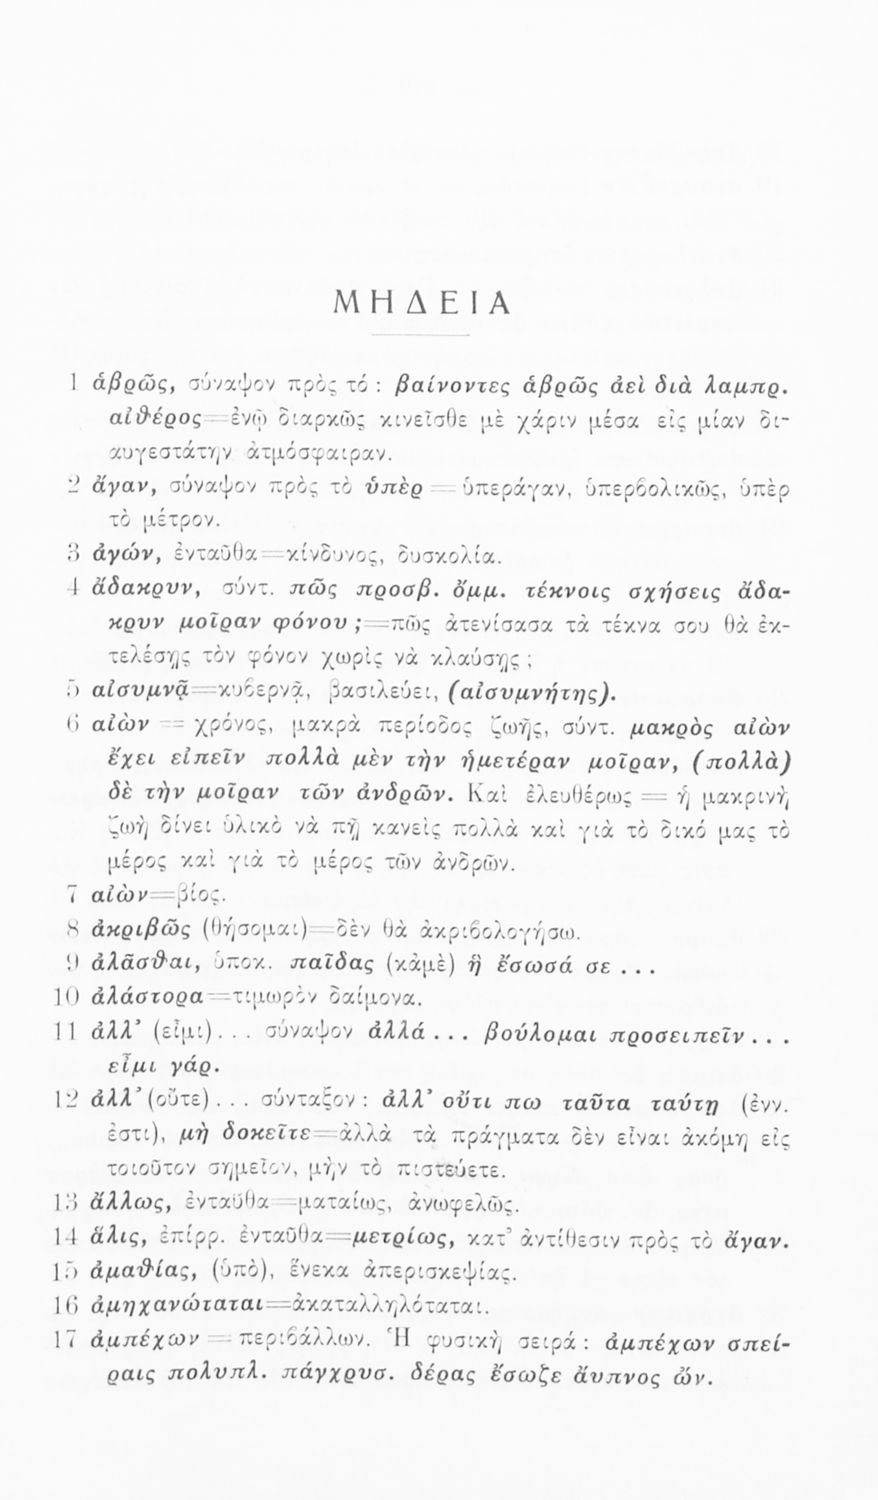 ΜΗΔΕΙΑ
1 ἁβρῶς, σύναψον πρὸς τό : βαίνοντες ἁβρῶς ἀεὶ διὰ λαμπρ.
αἰθέρος=ἐνῷ διαρκῶς κινεῖσθε μὲ χάριν μέσα εἰς μίαν δι-
αυγεστάτην ἀτμόσφαιραν.
2 ἄγαν, σύναψον πρὸς τὸ ὑπὲρ = ὑπεράγαν, ὑπερβολικῶς, ὑπὲρ
τὸ μέτρον.
3 ἀγών, ἐνταῦθα=κίνδυνος, δυσκολία.
4 ἄδακρυν, σύντ. πῶς προσβ. ὄμμ. τέκνοις σχήσεις ἄδα-
κρυν μοῖραν φόνου ;=πῶς ἀτενίσασα τὰ τέκνα σου θὰ ἐκ-
τελέσῃς τὸν φόνον χωρὶς νὰ κλαύσῃς ;
5 αἰσυμνᾷ=κυβερνᾷ, βασιλεύει, (αἰσυμνήτης).
6 αἰὼν = χρόνος, μακρὰ περίοδος ζωῆς, σύντ. μακρὸς αἰὼν
ἔχει εἰπεῖν πολλὰ μὲν τὴν ἡμετέραν μοῖραν, (πολλὰ)
δὲ τὴν μοῖραν τῶν ἀνδρῶν. Καὶ ἐλευθέρως = ἡ μακρινὴ
ζωὴ δίνει ὑλικὸ νὰ πῇ κανεὶς πολλὰ καὶ γιὰ τὸ δικό μας τὸ
μέρος καὶ γιὰ τὸ μέρος τῶν ἀνδρῶν.
7 αἰὼν=βίος.
8 ἀκριβῶς (θήσομαι)=δὲν θὰ ἀκριβολογήσω.
9 ἀλᾶσθαι, ὑποκ. παῖδας (κἀμὲ) ἢ ἔσωσά σε ...
10 ἀλάστορα=τιμωρὸν δαίμονα.
11 ἀλλ' (εἶμι)... σύναψον ἀλλά ... βούλομαι προσειπεῖν ...
εἶμι γάρ.
12 ἀλλ' (οὔτε)... σύνταξον : ἀλλ' οὔτι πω ταῦτα ταύτῃ (ἐνν.
ἐστι), μὴ δοκεῖτε=ἀλλὰ τὰ πράγματα δὲν εἶναι ἀκόμη εἰς
τοιοῦτον σημεῖον, μὴν τὸ πιστεύετε.
13 ἄλλως, ἐνταῦθα=ματαίως, ἀνωφελῶς.
14 ἅλις, ἐπίρρ. ἐνταῦθα=μετρίως, κατ' ἀντίθεσιν πρὸς τὸ ἄγαν.
15 ἀμαθίας, (ὑπὸ), ἕνεκα ἀπερισκεψίας.
16 ἀμηχανώταται=ἀκαταλληλόταται.
17 ἀμπέχων = περιβάλλων. Ἡ φυσικὴ σειρά : ἀμπέχων σπεί-
ραις πολυπλ. πάγχρυσ. δέρας ἔσωζε ἄυπνος ὤν.